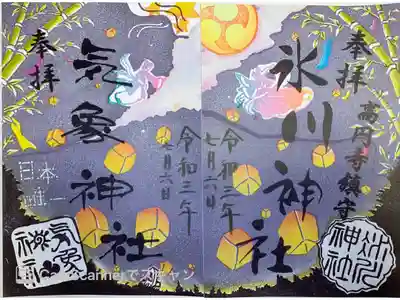 奉拝
高円寺鎮守
氷川神社
令和三年
七月六日
氷川
神社
奉拝
気象神社
令和三年
七月六日
日本
唯一
気象
神社
Scannerでスキャン